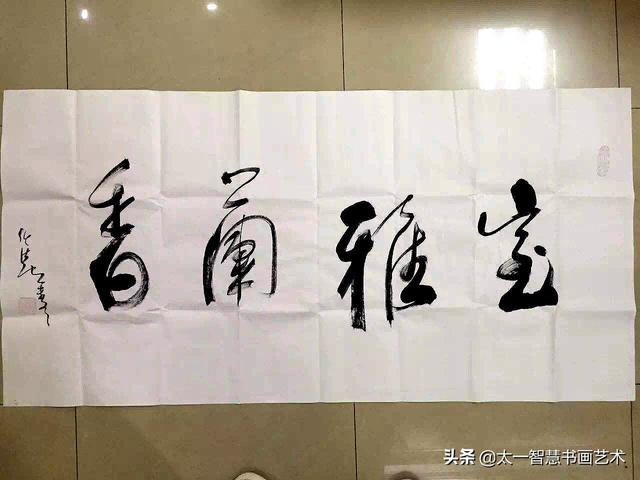 室雅兰香
头条 @太一智慧书画艺术